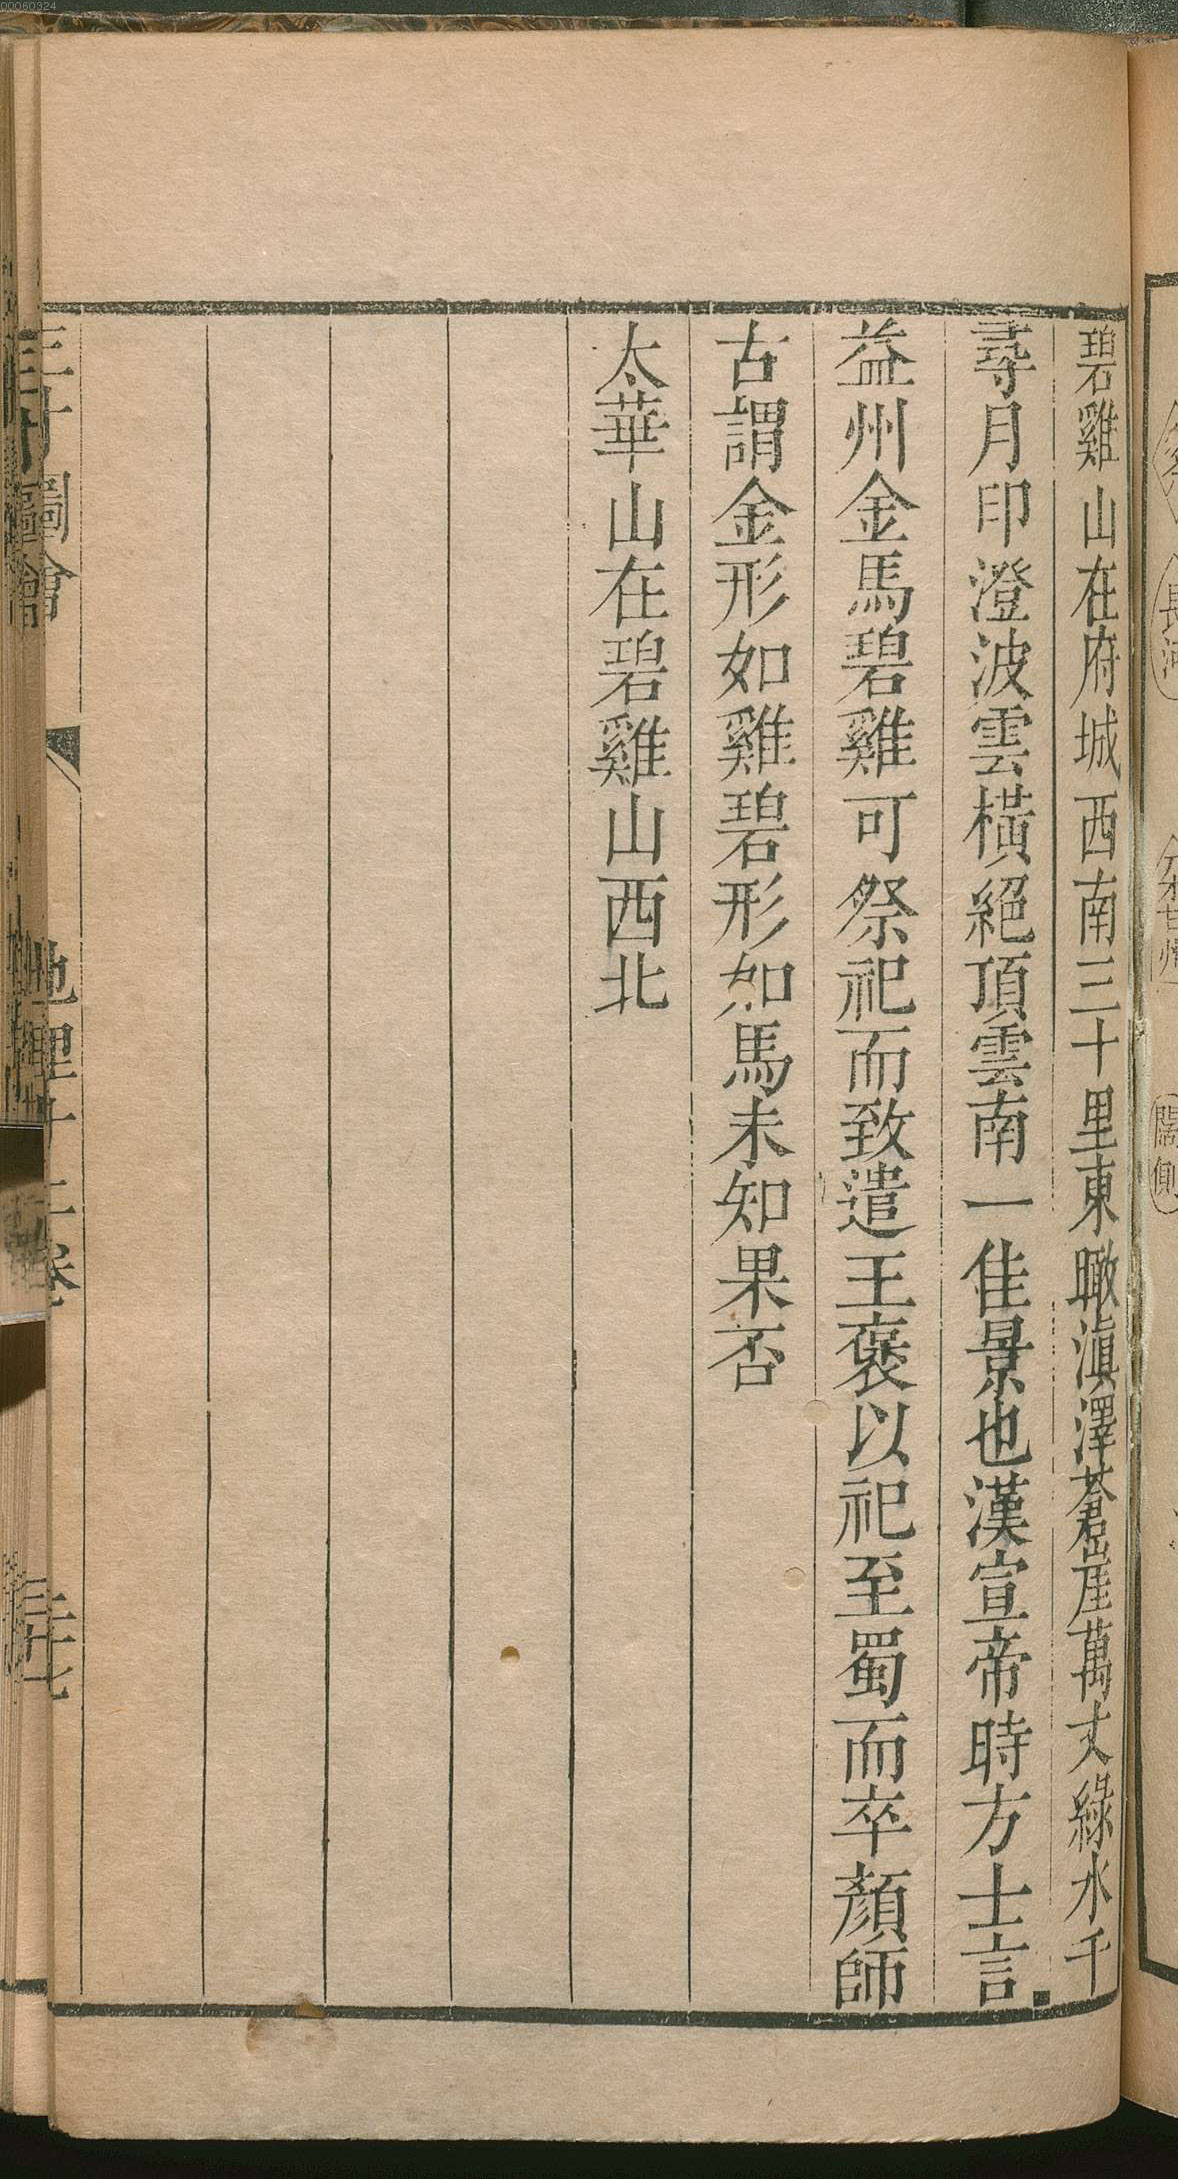 00060324
碧雞山在府城西南三十里東瞰滇澤蒼崖萬丈綠水千
尋月印澄波雲橫絕頂雲南一佳景也漢宣帝時方士言
益州金馬碧雞可祭祀而致遣王褒以祀至蜀而卒顏師
古謂金形如雞碧形如馬未知果否
太華山在碧雞山西北
三才圖會
地理十二卷
三十七